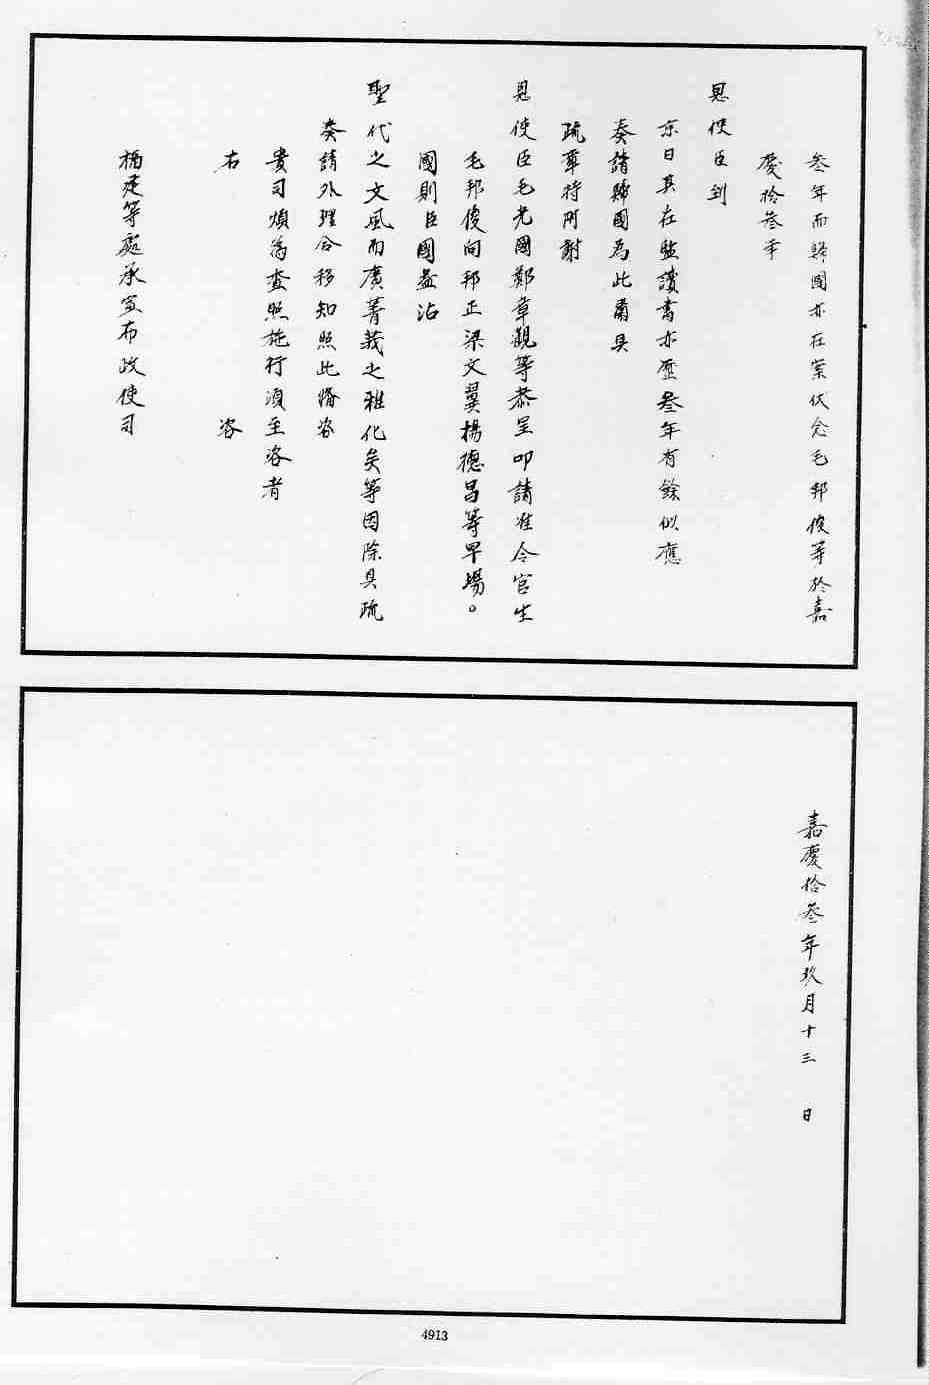 叁年而歸國亦在案伏念毛邦俊等於嘉
慶拾叁年
恩使臣到
京日其在監讀書亦歷叁年有餘似應
奏請歸國為此肅具
疏章特附謝
恩使臣毛光國鄭章觀等恭呈叩請准令官生
毛邦俊向邦正梁文翼楊德昌等早歸。
國則臣國益沾
聖代之文風而廣菁莪之雅化矣等因除具疏
奏請外理合移知照此備咨
貴司煩為查照施行須至咨者
右 咨
福建等處承宣布政使司
嘉慶拾叁年玖月十三 日
4913